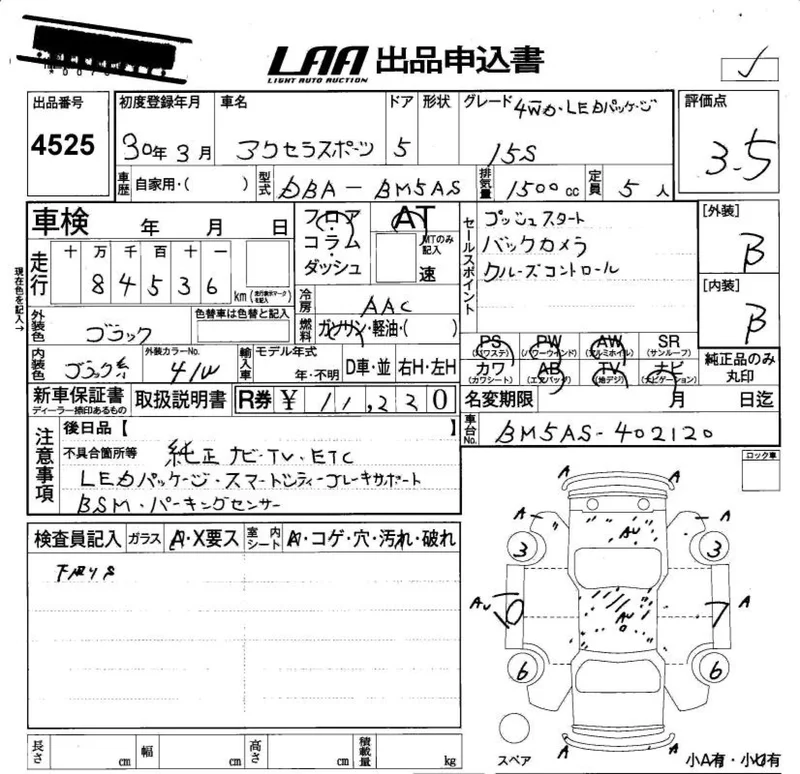 LAA 出品申込書
LIGHT AUTO AUCTION
出品番号 初度登録年月 車名 ドア 形状 グレード 4WD・LEDパッケージ 評価点
4525 30年3月 アクセラスポーツ 5 15S 3.5
車歴 自家用・( ) 型式 DBA-BM5AS 排気量 1500cc 定員 5人
車検 年 月 日 フロア・コラム・ダッシュ AT MTのみ記入 速
セールスポイント プッシュスタート
バックカメラ
クルーズコントロール
[外装] B
[内装] B
現在色を記入→
走行 十 万 千 百 十 一
84536 km (走行表示マークを記入)
冷房 AAC
外装色 ブラック 色替車は色替と記入 燃料 ガソリン・軽油・( )
PS (パワステ) PW (パワーウインド) AW (アルミホイル) SR (サンルーフ)
カワ (カワシート) AB (エアバッグ) TV (地デジ) ナビ (ナビゲーション)
純正品のみ丸印
内装色 ブラック系 外装カラーNo. 41W 輸入車 モデル年式 年・不明 D車・並 右H・左H
新車保証書 ディーラー捺印あるもの 取扱説明書 R券 ¥ 11,220 名変期限 月 日迄
車台No. BM5AS-402120
注意事項 後日品【 】
不具合箇所等 純正ナビ・TV・ETC
LEDパッケージ・スマートシティーブレーキサポート
BSM・パーキングセンサー
ロック車
検査員記入 ガラス A・X要ス 室内シート A・コゲ・穴・汚れ・破れ
下廻りS
A
A A
3 AU 3
AU A
7
AU
6 6
A A
スペア
小A有・小U有
長さ cm 幅 cm 高さ cm 積載量 kg